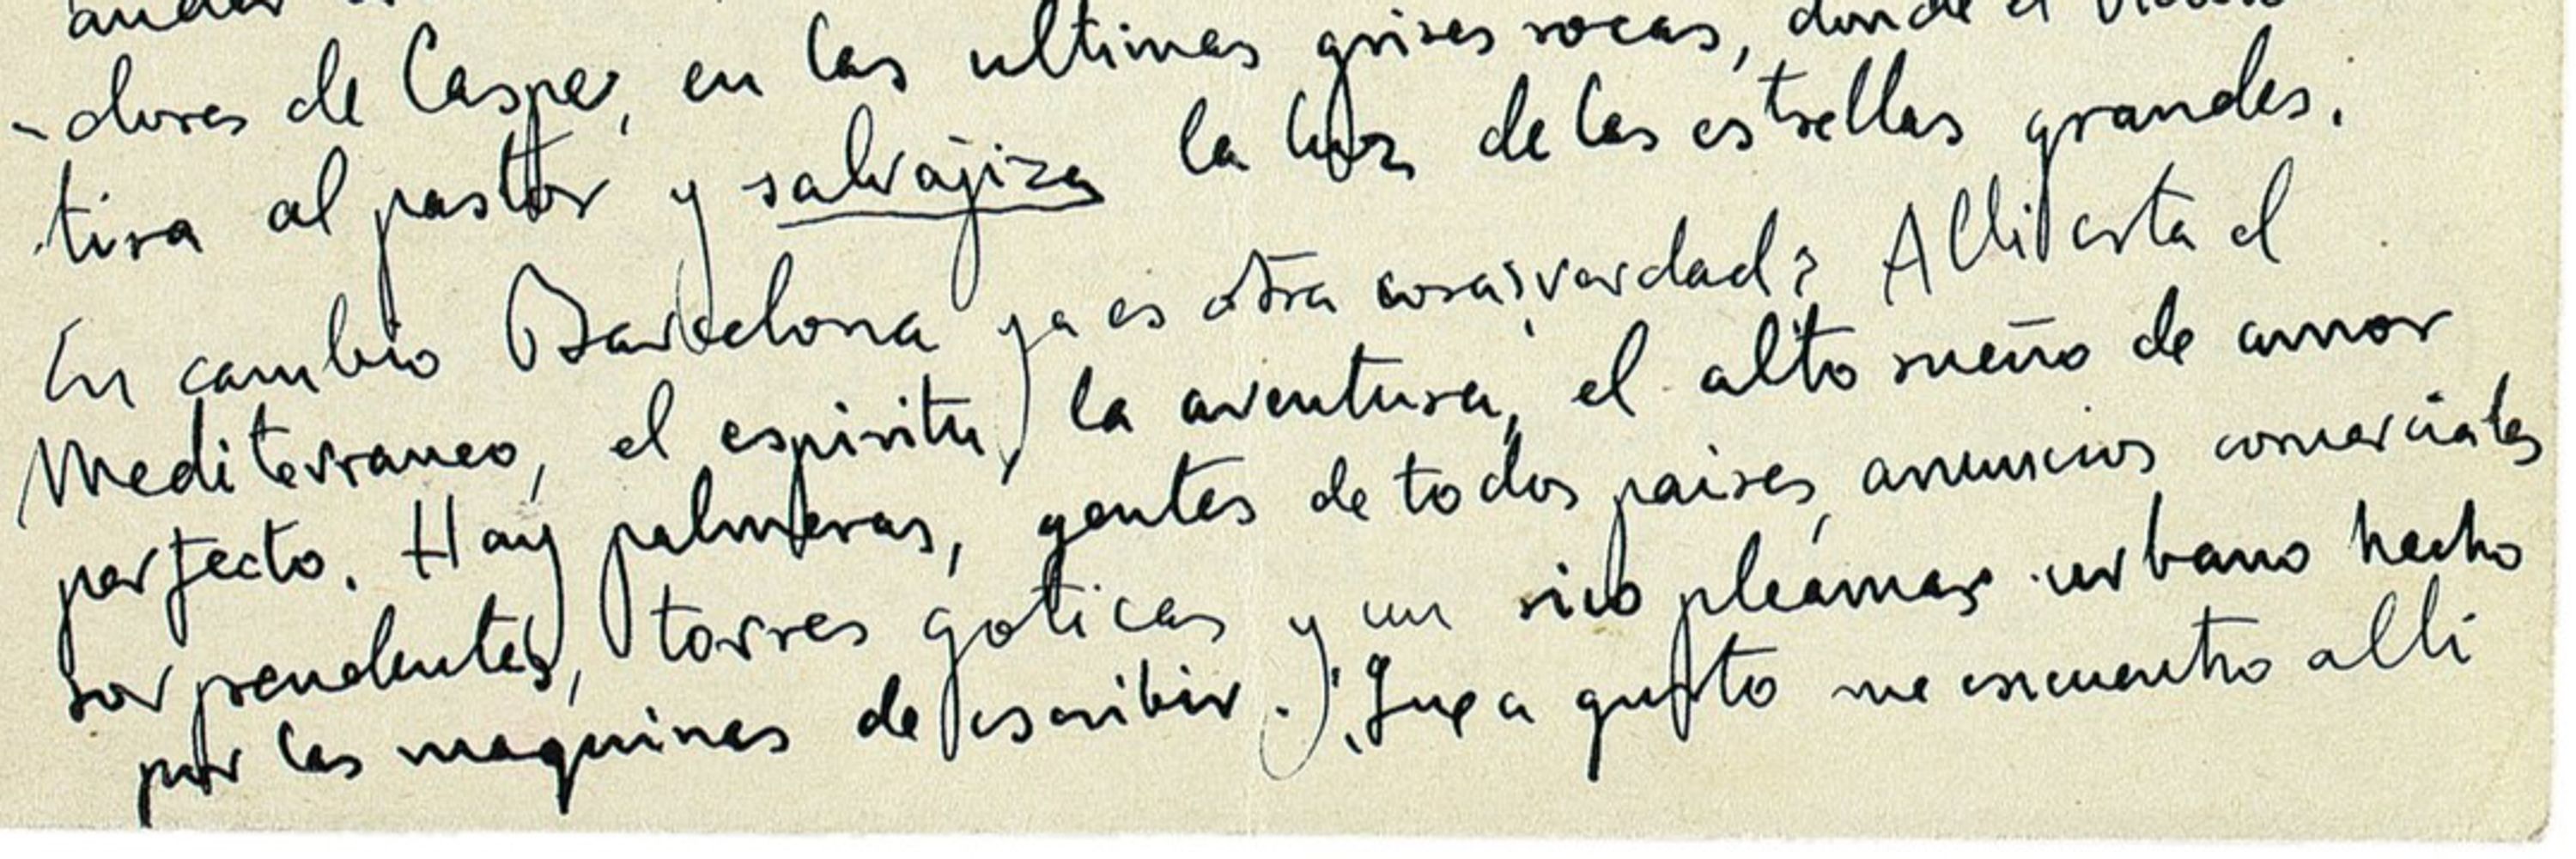 dores de Caspe, en las ultimas grises rocas, donde el
tira al pastor y salvajiza la luz de las estrellas grandes.
En cambio Barcelona ya es otra cosa ¿verdad? Alli esta el
Mediterraneo, el espiritu, la aventura, el alto sueño de amor
perfecto. Hay palmeras, gentes de todos paises, anuncios comerciales
sorprendentes, torres goticas y un rico pleamar urbano hecho
por las maquinas de escribir. ¡Que a gusto me encuentro alli